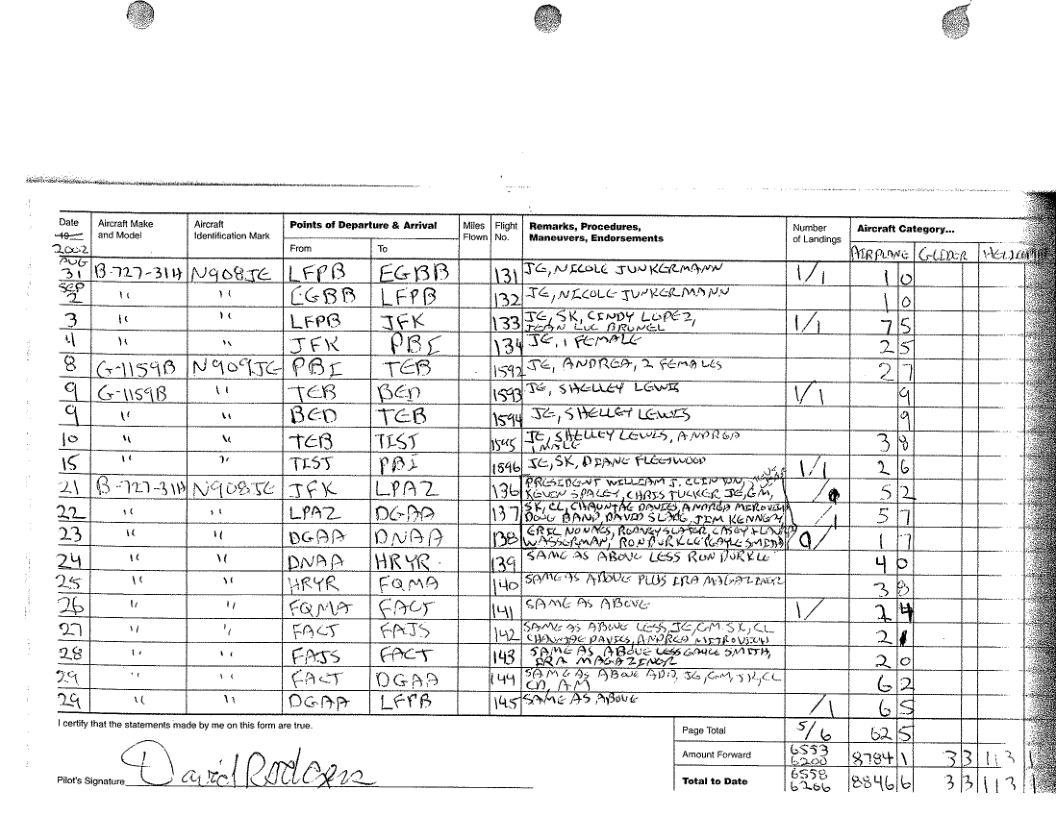 Date Aircraft Make and Model Aircraft Identification Mark Points of Departure & Arrival Miles Flown Flight No. Remarks, Procedures, Maneuvers, Endorsements Number of Landings Aircraft Category...
19 2002 From To AIRPLANE GLIDER
AUG 31 B-727-31H N908JE LFPB EGBB 131 JE, NICOLE JUNKERMANN 1/1 1 0
SEP 2 " " EGBB LFPB 132 JE, NICOLE JUNKERMANN 1 0
3 " " LFPB JFK 133 JE, SK, CINDY LOPEZ, JEAN LUC BRUNEL 1/1 7 5
4 " " JFK PBI 134 JE, 1 FEMALE 2 5
8 G-1159B N909JE PBI TEB 1592 JE, ANDREA, 2 FEMALES 2 7
9 G-1159B " TEB BED 1593 JE, SHELLEY LEWIS 1/1 9
9 " " BED TEB 1594 JE, SHELLEY LEWIS 9
10 " " TEB TIST 1595 JE, SHELLEY LEWIS, ANDREA 1 MALE 3 8
15 " " TIST PBI 1596 JE, SK, DIANE FLEETWOOD 1/1 2 6
21 B-727-31H N908JE JFK LPAZ 136 PRESIDENT WILLIAM J. CLINTON, KEVEN SPACEY, CHRIS TUCKER JE, GM, 5 2
22 " " LPAZ DGAA 137 SK, CL, CHAUNTAE DAVIES, ANDREA DOUG BAND, DAVID SLANG, JIM KENNEZ, /1 5 7
23 " " DGAA DNAA 138 ERIC NONACS, RODNEY SLATER, CASEY WASSERMAN, RON DURKLE GAYLE SMITH 0/ 1 7
24 " " DNAA HRYR 139 SAME AS ABOVE LESS RON DURKLE 4 0
25 " " HRYR FQMA 140 SAME AS ABOVE PLUS IRA MAGAZINER 3 8
26 " " FQMA FACT 141 SAME AS ABOVE 1/ 2 4
27 " " FACT FAJS 142 SAME AS ABOVE LESS, JE, GM, SK, CL CHAUNTAE DAVIES, ANDREA 2 1
28 " " FAJS FACT 143 SAME AS ABOVE LESS GAYLE SMITH, IRA MAGAZINER 2 0
29 " " FACT DGAA 144 SAME AS ABOVE ADD, JE, GM, SK, CL CD, AM 6 2
29 " " DGAA LFPB 145 SAME AS ABOVE /1 6 5
I certify that the statements made by me on this form are true. Page Total 5/6 62 5
Amount Forward 6553 6200 8784 1 3 3 113 1
Pilot's Signature David Rodgers Total to Date 6558 6206 8846 6 3 3 113 1